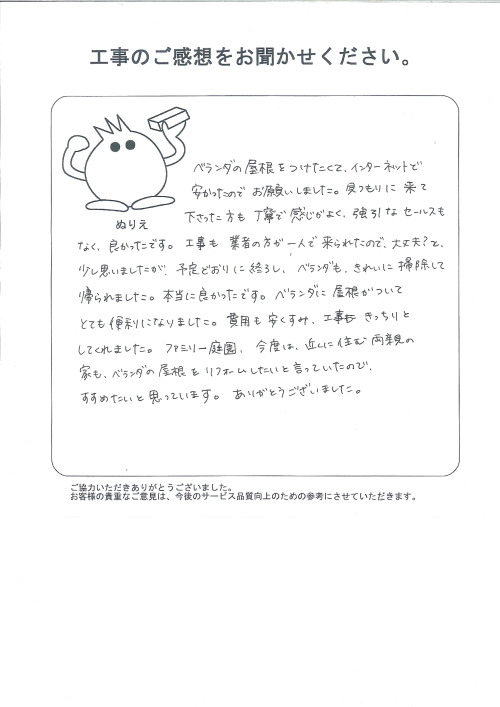 工事のご感想をお聞かせください。
ベランダの屋根をつけたくて、インターネットで
安かったので お願いしました。見つもりに 来て
下さった方も 丁寧で 感じがよく、強引な セールスも
ぬりえ
なく、良かったです。 工事も 業者の方が一人で 来られたので、大丈夫?と、
少し思いましたが、予定どおりに 終ろし、 ベランダも、きれいに 掃除して
帰られました。本当に良かったです。 ベランダに 屋根がついて
とても 便利になりました。 費用も 安くすみ、工事も きっちりと
してくれました。 ファミリー庭園、 今度は、近くに住む 両親の
家も、ベランダの 屋根を リフォームしたいと 言っていたので、
すすめたいと 思っています。 ありがとうございました。
ご協力いただきありがとうございました。
お客様の貴重なご意見は、今後のサービス品質向上のための参考にさせていただきます。